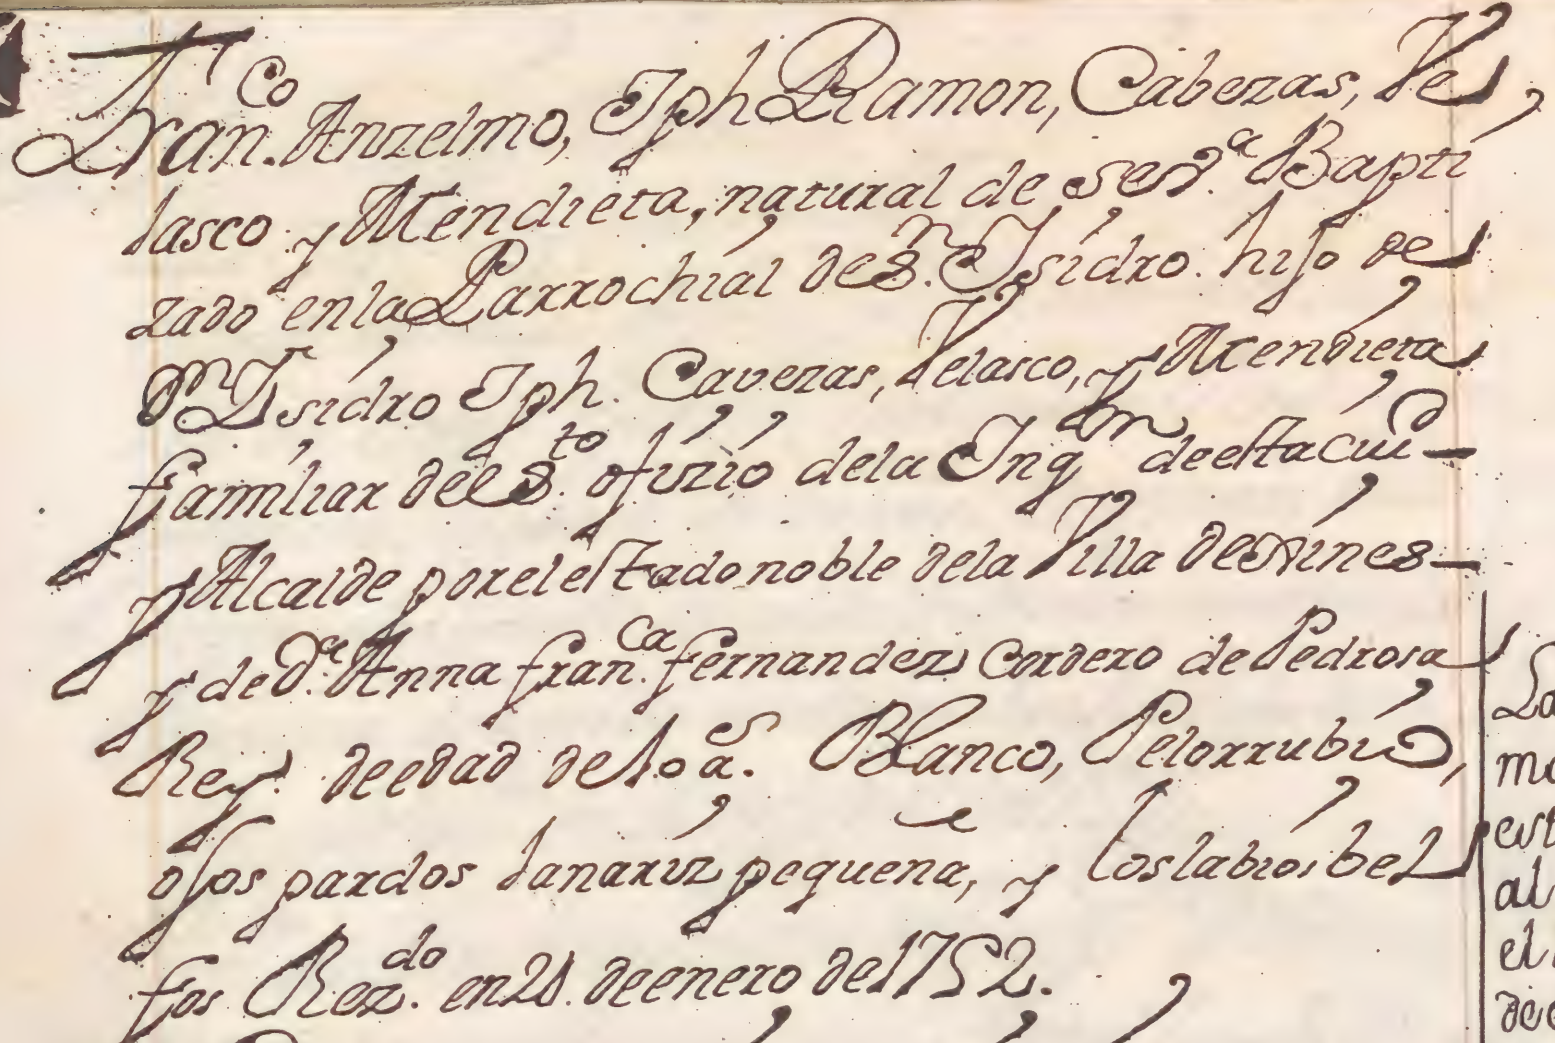 Fran.co Anzelmo, Jph Ramon, Cabezas, Ve,
lasco y Mendieta, natural de Sev.a Bapti
zado en la Parrochial de S.n Isidro. hijo de
Dn Isidro Jph. Cavezas, Velasco, y Mendieta
familiar del S.to ofizio dela Inqn de esta ciud
y Alcalde por el estado noble dela Villa de Nines
y de D.a Anna fran.ca fernandez Cordero de Pedrosa
Rey. de edad de 10 as. Blanco, Pelo rrubio,
ojos pardos la nariz pequeña, y los labios bel
fos Rez.do en 21 de enero de 1752.